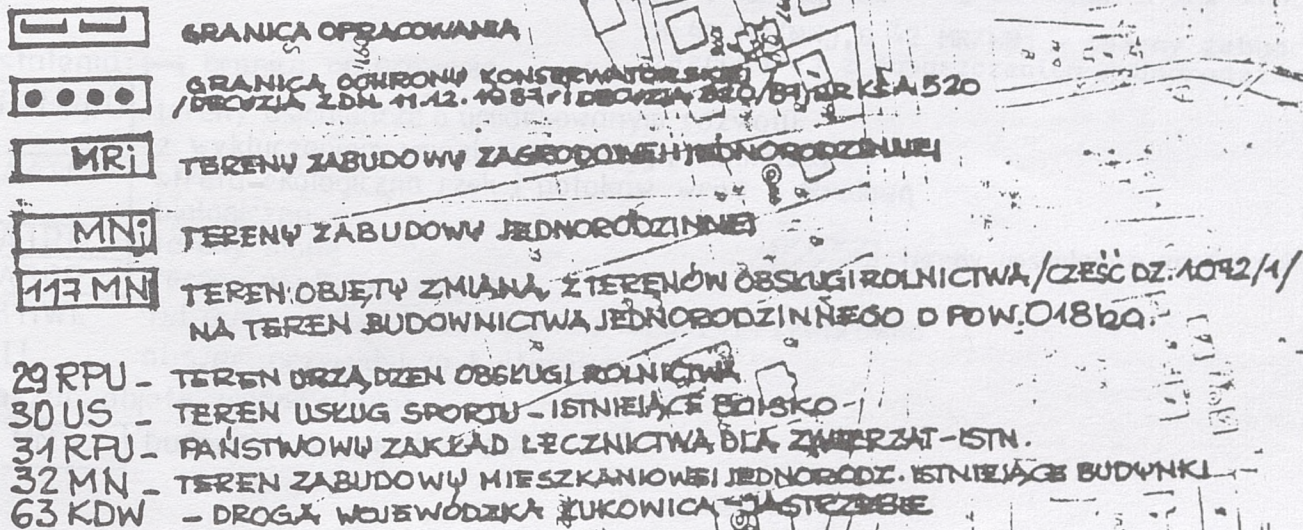 GRANICA OPRACOWANIA
GRANICA OCHRONY KONSERWATORSKIEJ /
/DECYZJA Z DN. 11.12.1987 / I DECYZJA 520
MRj TERENY ZABUDOWY ZAGRODOWEJ I JEDNORODZINNEJ
MNj TERENY ZABUDOWY JEDNORODZINNEJ
117 MN TEREN OBJĘTY ZMIANĄ Z TERENÓW OBSŁUGI ROLNICTWA /CZEŚĆ DZ. 1092/1/
NA TEREN BUDOWNICTWA JEDNORODZINNEGO O POW. 018 ha.
29 RPU - TEREN URZĄDZEŃ OBSŁUGI ROLNICTWA
30 US - TEREN USŁUG SPORTU - ISTNIEJĄCE BOISKO
31 RPU - PAŃSTWOWY ZAKŁAD LECZNICTWA DLA ZWIERZĄT - ISTN.
32 MN - TEREN ZABUDOWY MIESZKANIOWEJ JEDNORODZ. ISTNIEJĄCE BUDYNKI
63 KDW - DROGA WOJEWÓDZKA ŻUKOWICA - JASTRZĘBIE